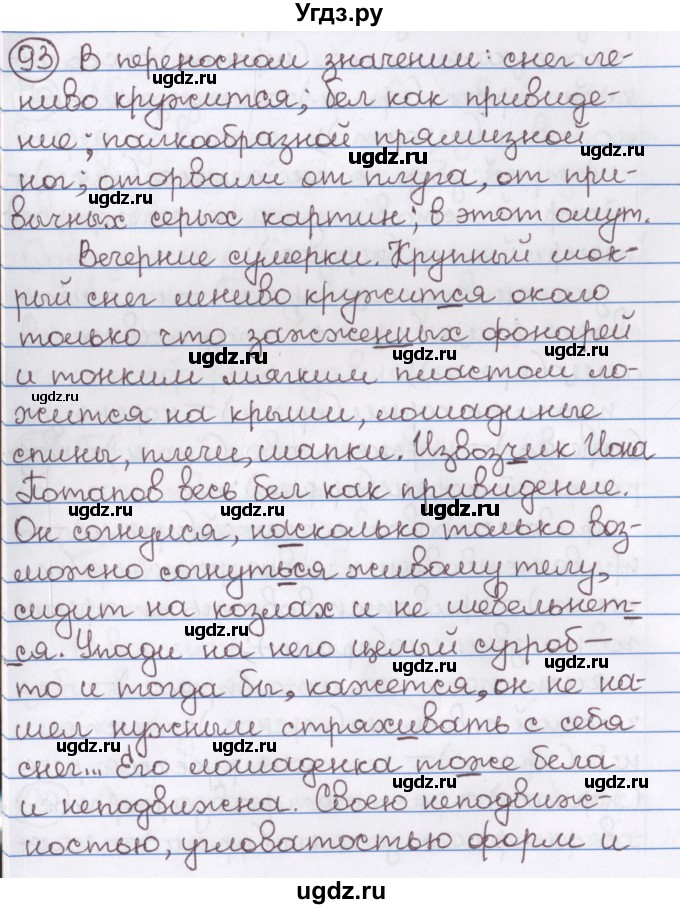 Угдз.ру
93 В переносном значении: снег ле-
ugdz.ru ugdz.ru
ниво кружится; бел как привиде-
ние; палкообразной прямизной
ugdz.ru ugdz.ru
ног; оторвали от плуга, от при-
ugdz.ru ugdz.ru
вычных серых картин; в этот омут.
ugdz.ru
Вечерние сумерки. Крупный мок-
рый снег лениво кружится около
ugdz.ru
только что зажженных фонарей
ugdz.ru ugdz.ru
и тонким мягким пластом ло-
ugdz.ru
жится на крыши, лошадиные
ugdz.ru
спины, плечи, шапки. Извозчик Иона
ugdz.ru
Потапов весь бел как привидение.
ugdz.ru ugdz.ru
Он согнулся, насколько только воз-
можно согнуться живому телу,
ugdz.ru
сидит на козлах и не шевельнет-
ugdz.ru
ся. Упади на него целый сугроб –
ugdz.ru
то и тогда бы, кажется, он не на-
шел нужным стряхивать с себя
ugdz.ru ugdz.ru
снег... Его лошаденка тоже бела
ugdz.ru ugdz.ru
и неподвижна. Своею неподвиж-
ugdz.ru
ностью, угловатостью форм и
ugdz.ru